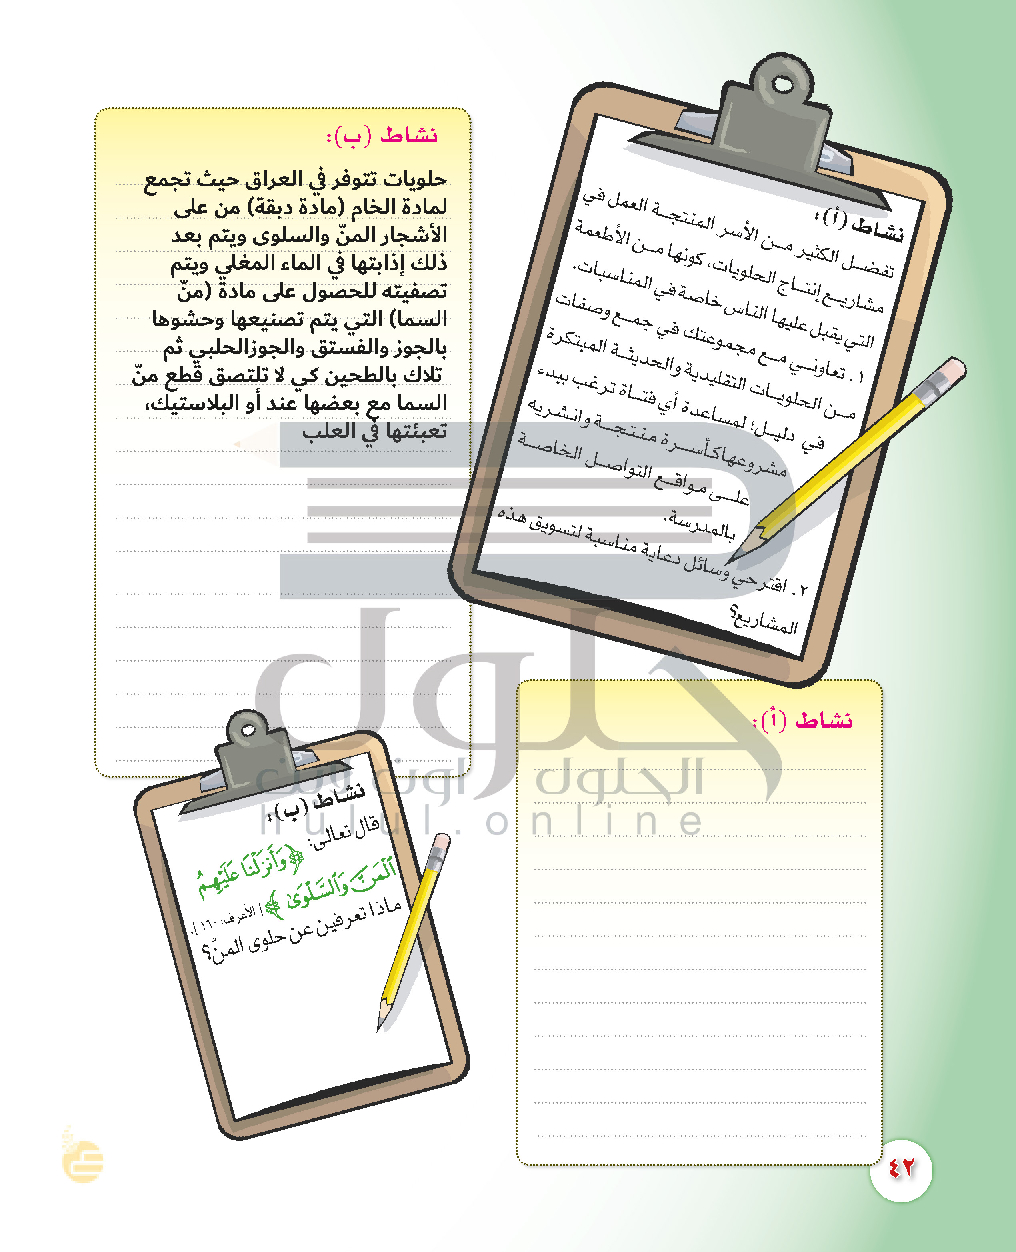 نشاط (أ):
تفضل الكثير من الأسر المنتجة العمل في
مشاريع إنتاج الحلويات، كونها من الأطعمة
التي يقبل عليها الناس خاصة في المناسبات.
١. تعاوني مع مجموعتك في جمع وصفات
من الحلويات التقليدية والحديثة المبتكرة
في دليل؛ لمساعدة أي فتاة ترغب ببدء
مشروعها كأسرة منتجة وانشريه
على مواقع التواصل الخاصة
بالمدرسة.
٢. اقترحي وسائل دعاية مناسبة لتسويق هذه
المشاريع؟
نشاط (ب):
حلويات تتوفر في العراق حيث تجمع
لمادة الخام (مادة دبقة) من على
الأشجار المنّ والسلوى ويتم بعد
ذلك إذابتها في الماء المغلي ويتم
تصفيته للحصول على مادة (منّ
السما) التي يتم تصنيعها وحشوها
بالجوز والفستق والجوزالحلبي ثم
تلاك بالطحين كي لا تلتصق قطع منّ
السما مع بعضها عند أو البلاستيك،
تعبئتها في العلب
نشاط (أ):
نشاط (ب):
قال تعالى:
﴿وَأَنزَلْنَا عَلَيْهِمُ
ٱلْمَنَّ وَٱلسَّلْوَىٰ﴾ [الأعراف: ١٦٠].
ماذا تعرفين عن حلوى المنّ؟
حلول
الحلول اون لاين
hulul.online
٤٢